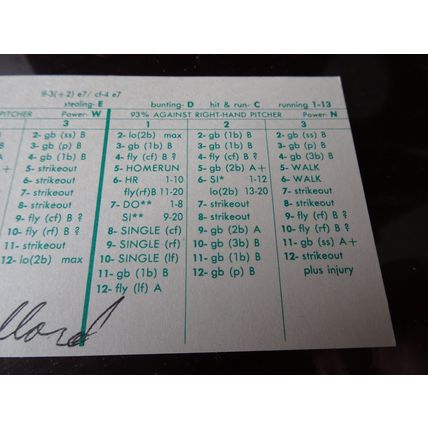 lf-3(+2) e7/ cf-4 e7
stealing- E bunting- D hit & run- C running 1-13
PITCHER Power- W
3
2- gb (ss) B
3- gb (p) B
4- gb (1b) B
5- strikeout
6- strikeout
7- strikeout
8- strikeout
9- fly (cf) B ?
10- fly (rf) B ?
11- strikeout
12- lo(2b) max
93% AGAINST RIGHT-HAND PITCHER Power- N
1
2- lo(2b) max
3- gb (1b) B
4- fly (cf) B ?
5- HOMERUN
6- HR 1-10
fly(rf)B 11-20
7- DO** 1-8
SI** 9-20
8- SINGLE (cf)
9- SINGLE (rf)
10- SINGLE (lf)
11- gb (1b) B
12- fly (lf) A
2
2- gb (1b) B
3- gb (1b) B
4- fly (cf) B ?
5- gb (2b) A+
6- SI* 1-12
lo(2b) 13-20
7- strikeout
8- strikeout
9- gb (2b) A
10- gb (3b) B
11- gb (1b) B
12- gb (p) B
3
2- gb (ss) B
3- gb (p) B
4- gb (3b) B
5- WALK
6- WALK
7- strikeout
8- strikeout
9- fly (lf) B ?
10- fly (rf) B ?
11- gb (ss) A+
12- strikeout
plus injury